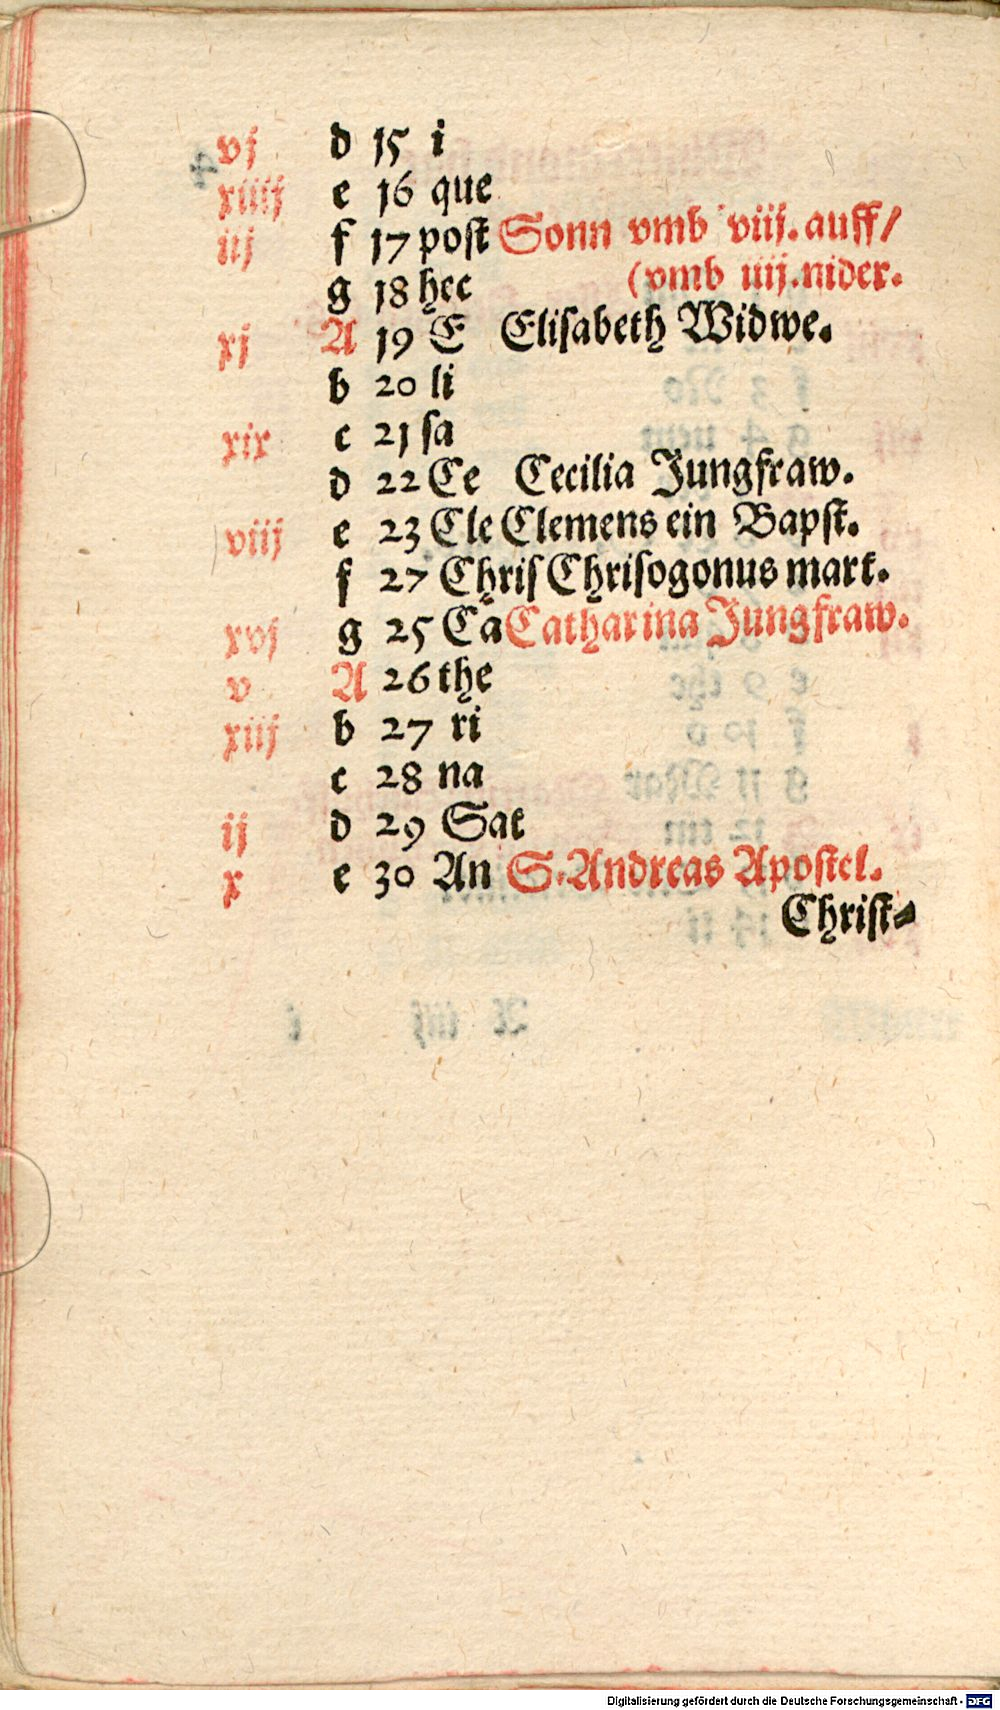 vj d 15 i
xiiij e 16 que
iij f 17 poſt Sonn vmb viij. auff/
g 18 hec (vmb iiij. nider.
xj A 19 E Eliſabeth Widwe.
b 20 li
xix c 21 ſa
d 22 Ce Cecilia Jungfraw.
viij e 23 Cle Clemens ein Bapſt.
f 27 Chriſ Chriſogonus mart.
xvj g 25 Ca Catharina Jungfraw.
v A 26 the
xiij b 27 ri
c 28 na
ij d 29 Sat
x e 30 An S. Andreas Apoſtel.
Chriſt⸗
Digitalisierung gefördert durch die Deutsche Forschungsgemeinschaft - DFG